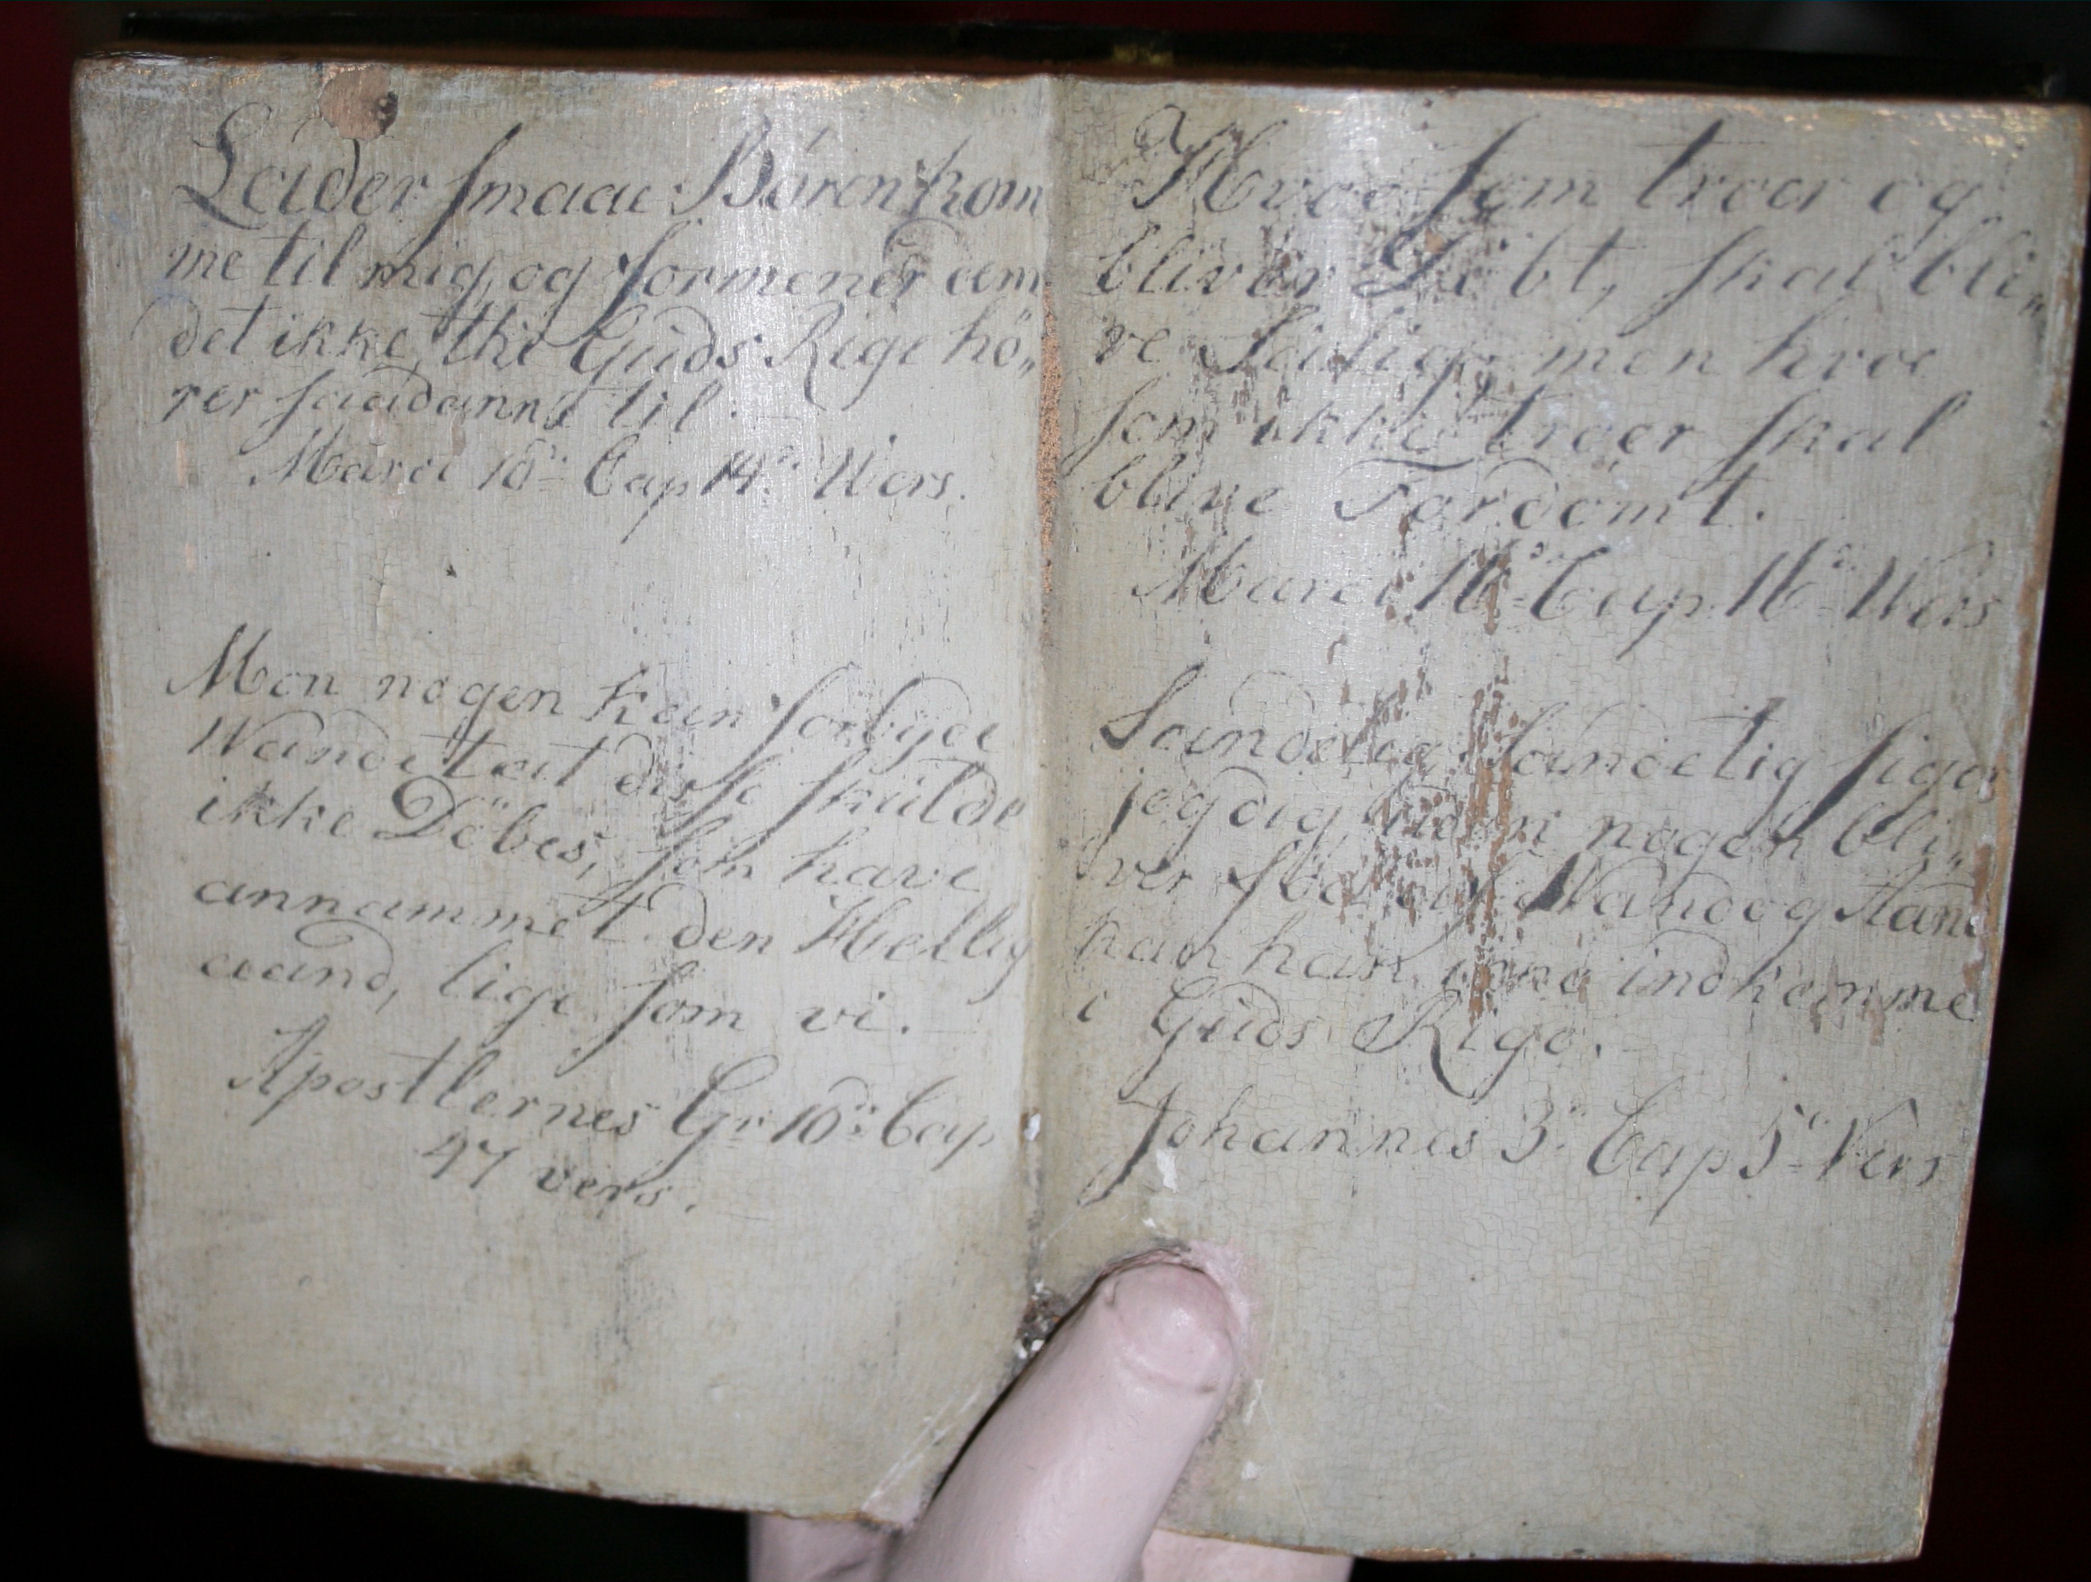 Lader smaae Bören kom
me til mig, og formener dem
det ikke, thi Guds Rige hö„
rer saadanne til.
Marci 10de Cap 14de Wers.
Mon nogen kan forbyde
Wandet at disse skulde
ikke Döbes, som have
annammet den Hellig
aand, lige som vi.
Apostlernes Gr 10de Cap
47 vers.
Hvoe som troer og
bliver Döbt, skal bli„
ve Salig, men hvoe
som ikke troer skal
blive Fordömt.
Marci 16de Cap 16de Wers
Sandelig Sandelig siger
jeg dig, uden nogen bli„
ver föd af Wand og Aand
kan han ikke indkomme
i Guds Rige.
Johannes 3de Cap 5te Vers